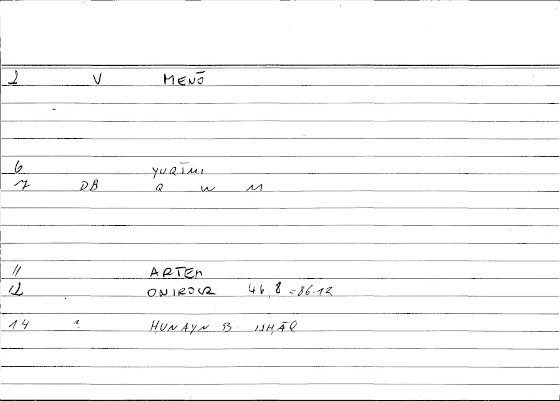 1 V MENŌ
6 YURĪMI
7 DB Q W M
11 ARTEM
12 ONIROCR 46,8 =86.12
14 ? HUNAYN B. ISHĀQ